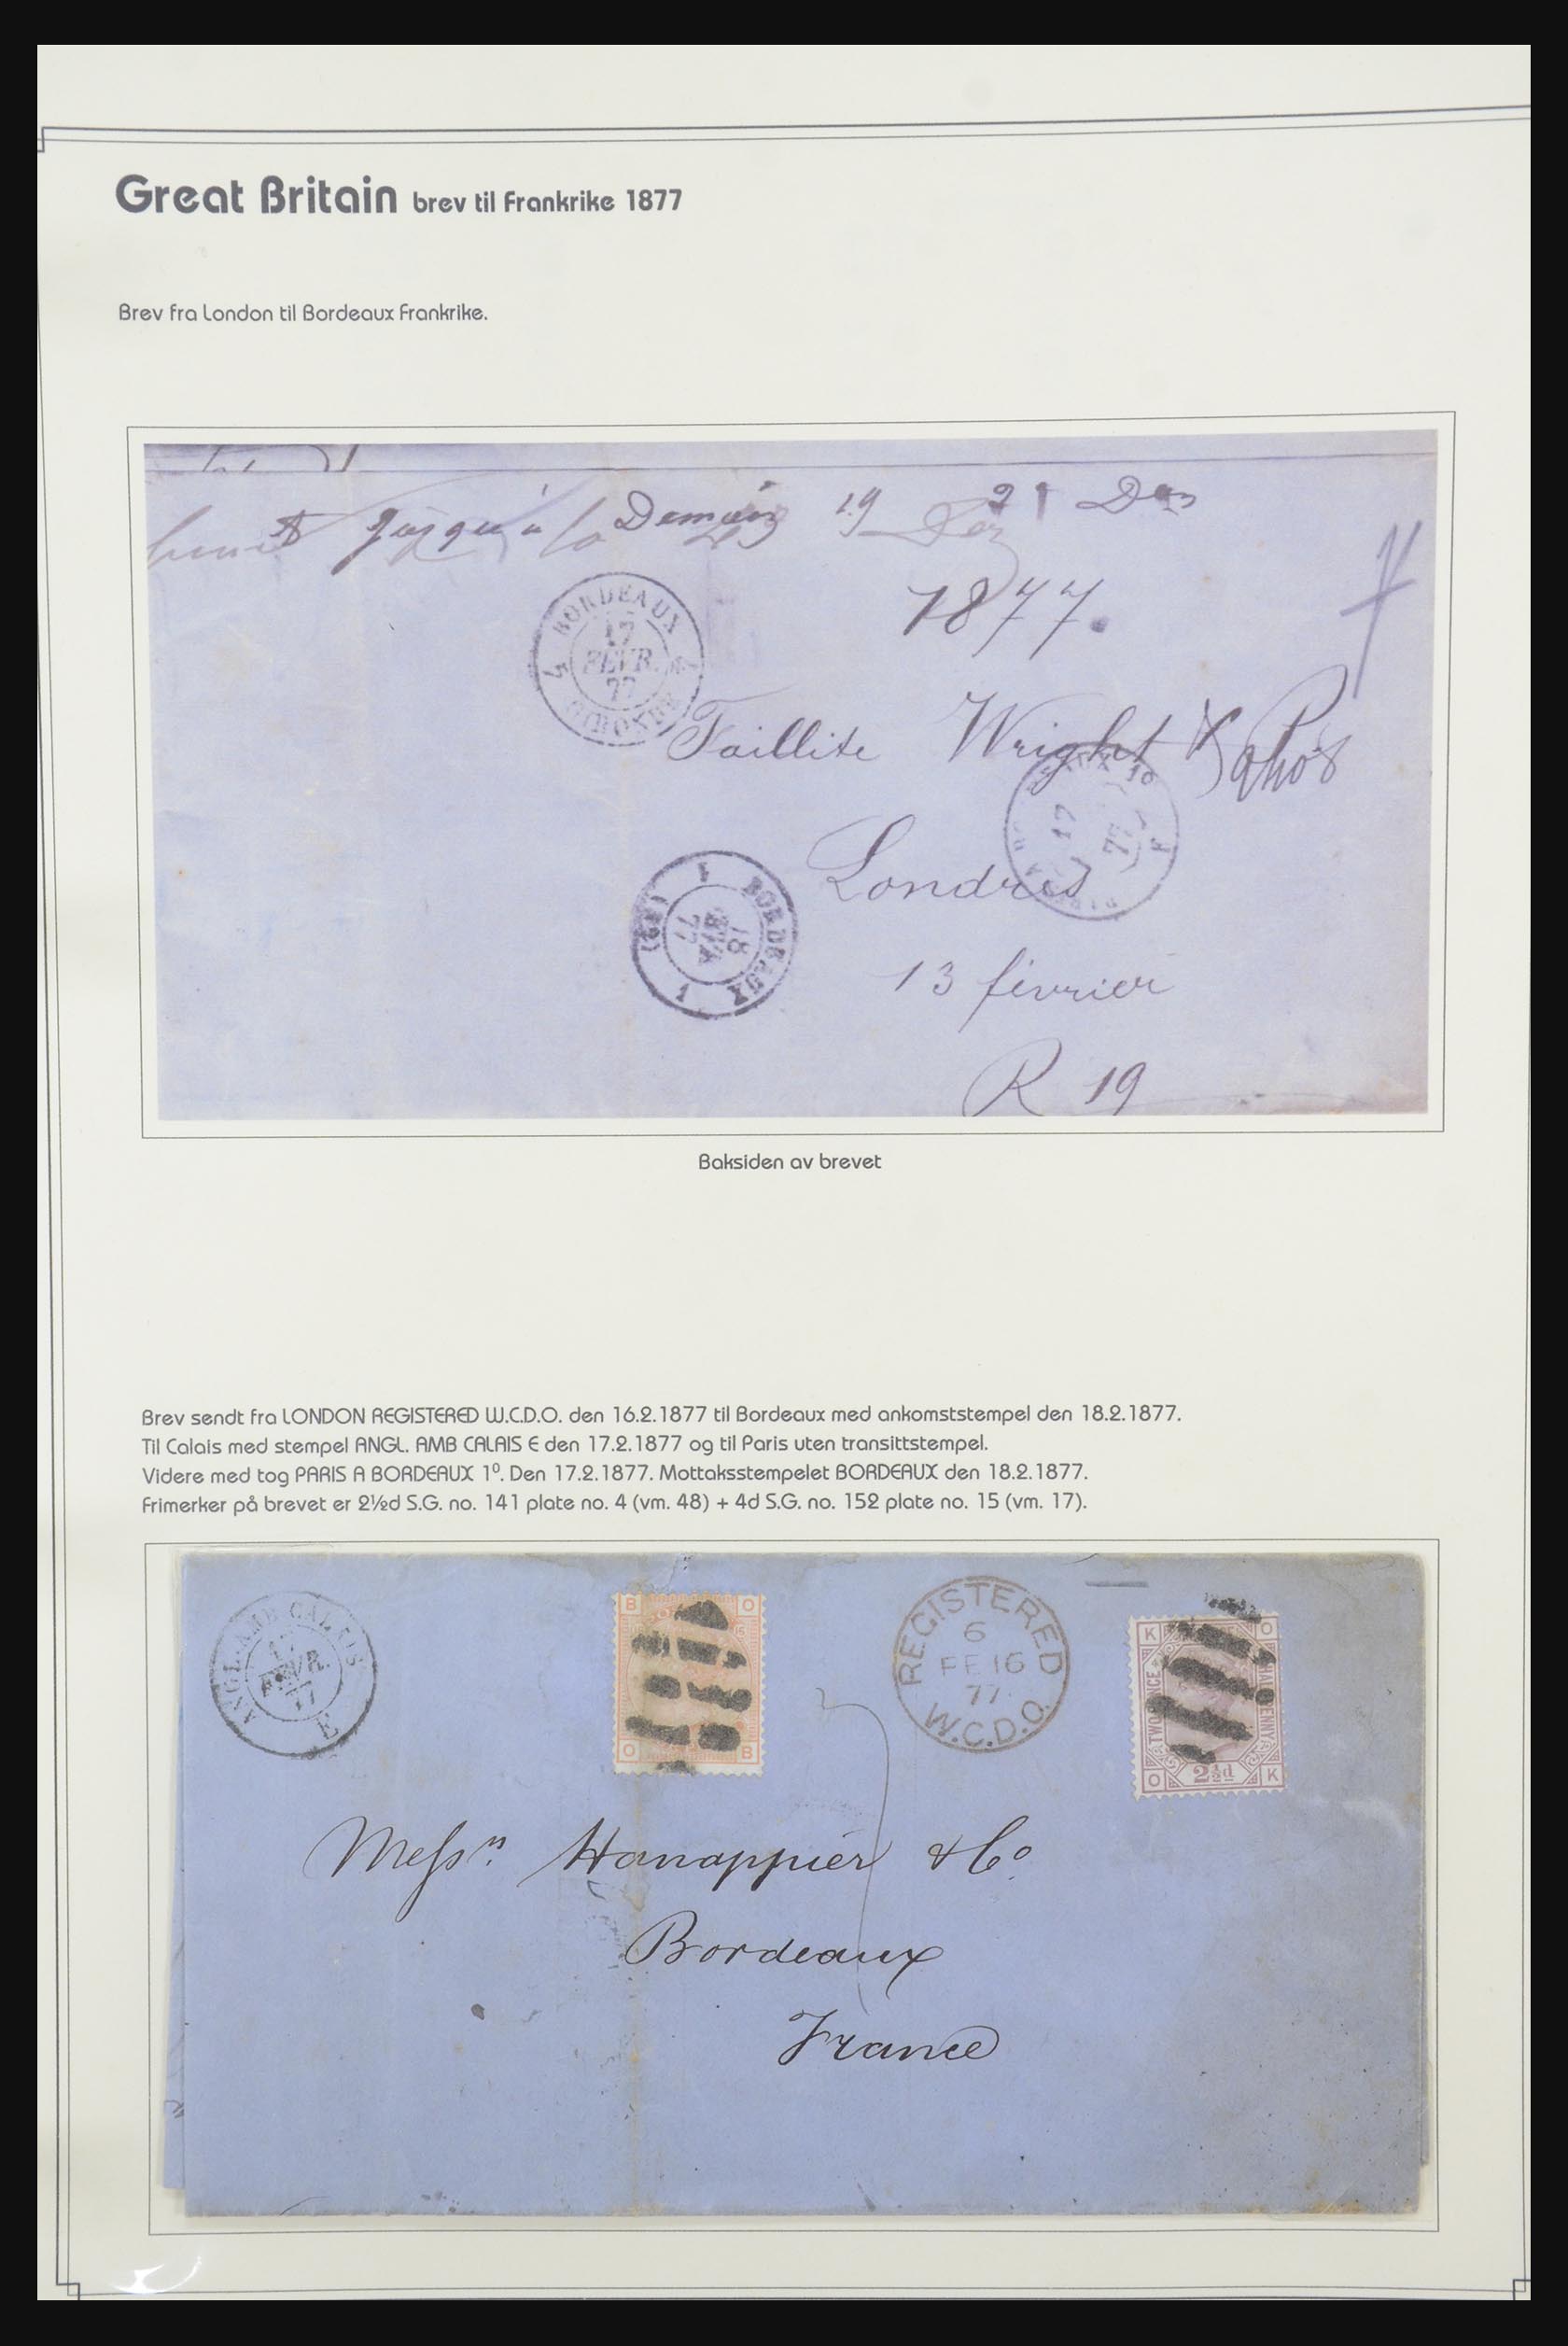 Great Britain brev til Frankrike 1877
Brev fra London til Bordeaux Frankrike.
jusqu'à la 19 21
1877.
BORDEAUX
17
FEVR.
77
GIRONDE
Faillite Wright &
17
77
Londres
1 BORDEAUX 1
18
77
13 février
R 19
Baksiden av brevet
Brev sendt fra LONDON REGISTERED W.C.D.O. den 16.2.1877 til Bordeaux med ankomststempel den 18.2.1877.
Til Calais med stempel ANGL. AMB CALAIS E den 17.2.1877 og til Paris uten transittstempel.
Videre med tog PARIS A BORDEAUX 1º. Den 17.2.1877. Mottaksstempelet BORDEAUX den 18.2.1877.
Frimerker på brevet er 2½d S.G. no. 141 plate no. 4 (vm. 48) + 4d S.G. no. 152 plate no. 15 (vm. 17).
ANGL. AMB CALAIS
FEVR.
77
E
B O
O B
REGISTERED
6
FE 16
77
W.C.D.O.
K O
TWOPENCE HALFPENNY
O 2½d K
Messrs. Hanappier & Co.
Bordeaux
France